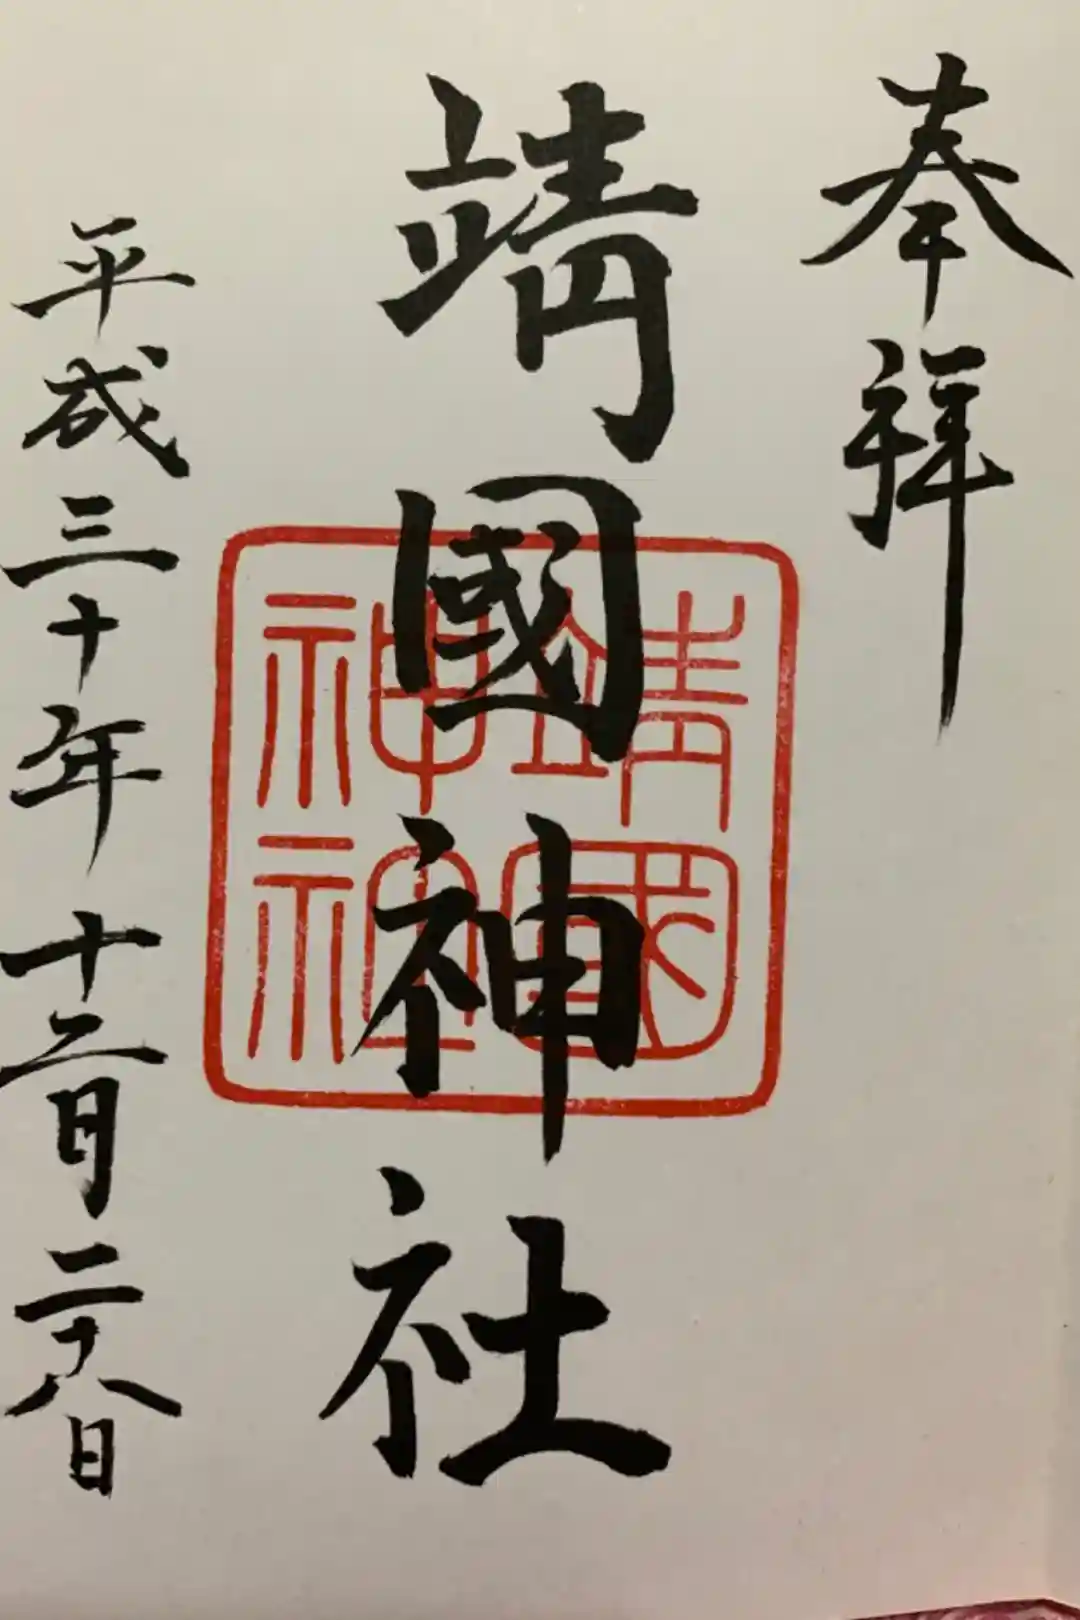 奉拝
靖國神社
靖國
神社
平成三十年十二月二十八日